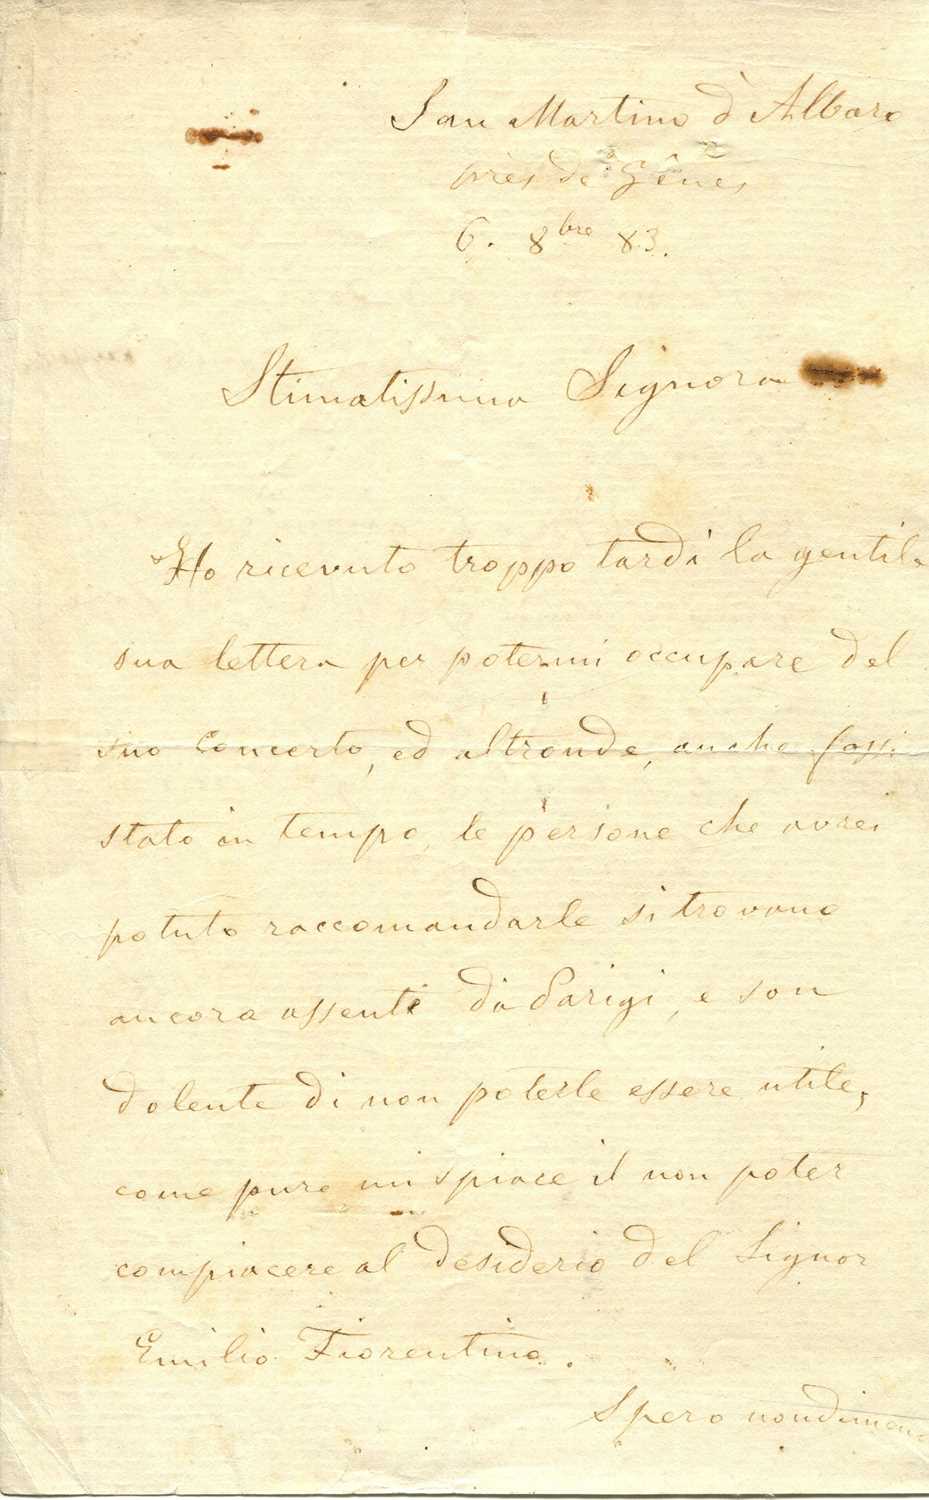 San Martino d'Albaro
près de Gênes
6. 8bre 83.
Stimatissima Signora
Ho ricevuto troppo tardi la gentile
sua lettera per potermi occupare del
suo Concerto, ed altronde, anche fossi
stato in tempo, le persone che avrei
potuto raccomandarle si trovano
ancora assenti da Parigi, e son
dolente di non poterle essere utile,
come pure mi spiace il non poter
compiacere al desiderio del Signor
Emilio Fiorentino.
Spero nondimeno